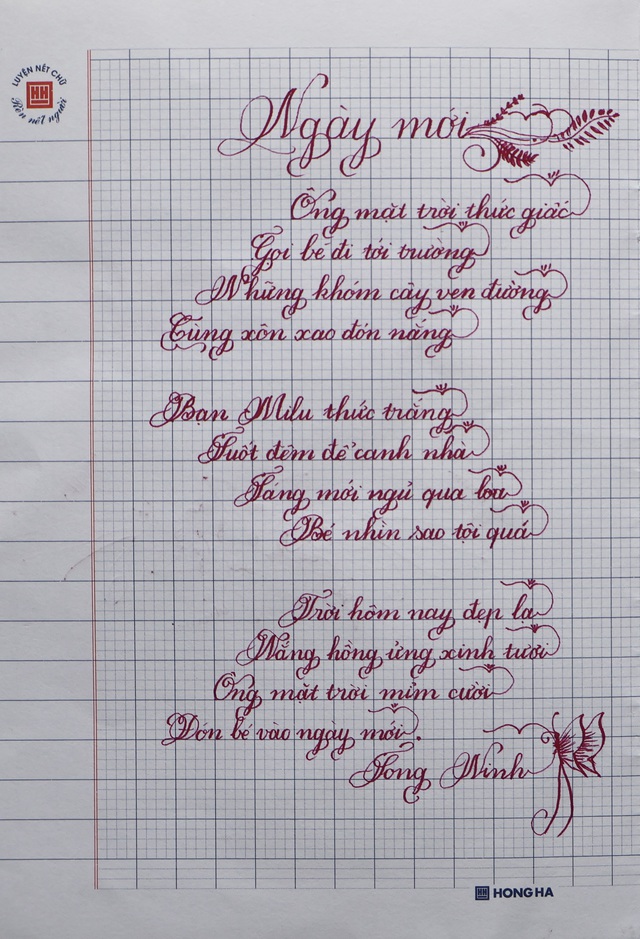 LUYỆN NÉT CHỮ
Rèn nết người
Ngày mới
Ông mặt trời thức giấc
Gọi bé đi tới trường
Những khóm cây ven đường
Cùng xôn xao đón nắng
Bạn Milu thức trắng
Suốt đêm để canh nhà
Sáng mới ngủ qua loa
Bé nhìn sao tội quá
Trời hôm nay đẹp lạ
Nắng hồng ửng xinh tươi
Ông mặt trời mỉm cười
Đón bé vào ngày mới.
Tống Ninh
HH HONG HA